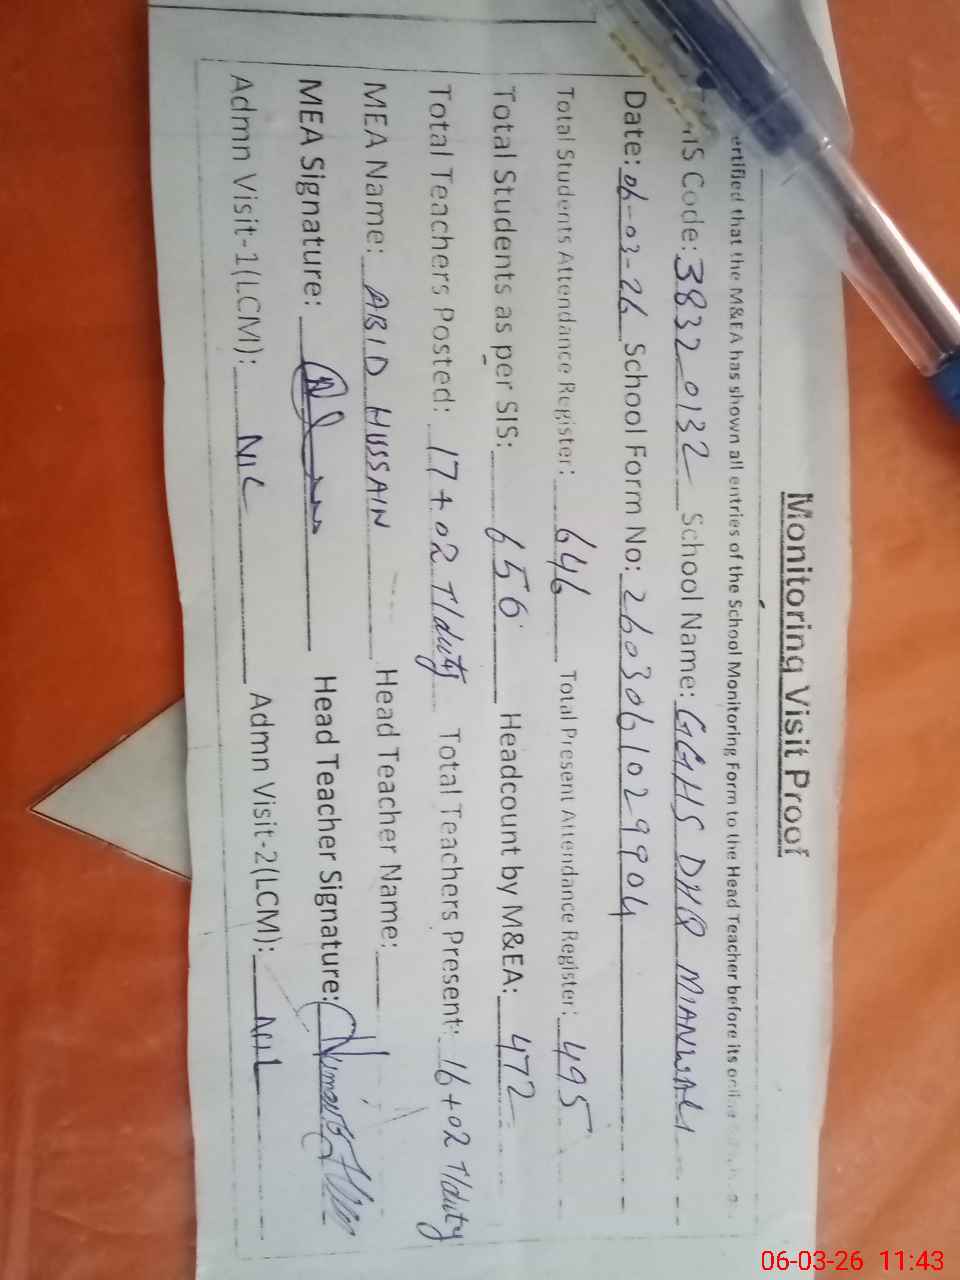 Monitoring Visit Proof
ertified that the M&EA has shown all entries of the School Monitoring Form to the Head Teacher before its
IS Code: 3832 0132 School Name: GGHS DHQ MIANWALI
Date: 06-03-26 School Form No: 2603061029904
Total Students Attendance Register: 646 Total Present Attendance Register: 495
Total Students as per SIS: 656 Headcount by M&EA: 472
Total Teachers Posted: 17+02 T/duty Total Teachers Present: 16+02 T/duty
MEA Name: ABID HUSSAIN Head Teacher Name:
MEA Signature: Head Teacher Signature:
Admn Visit-1(LCM): NIL Admn Visit-2(LCM): NIL
06-03-26 11:43